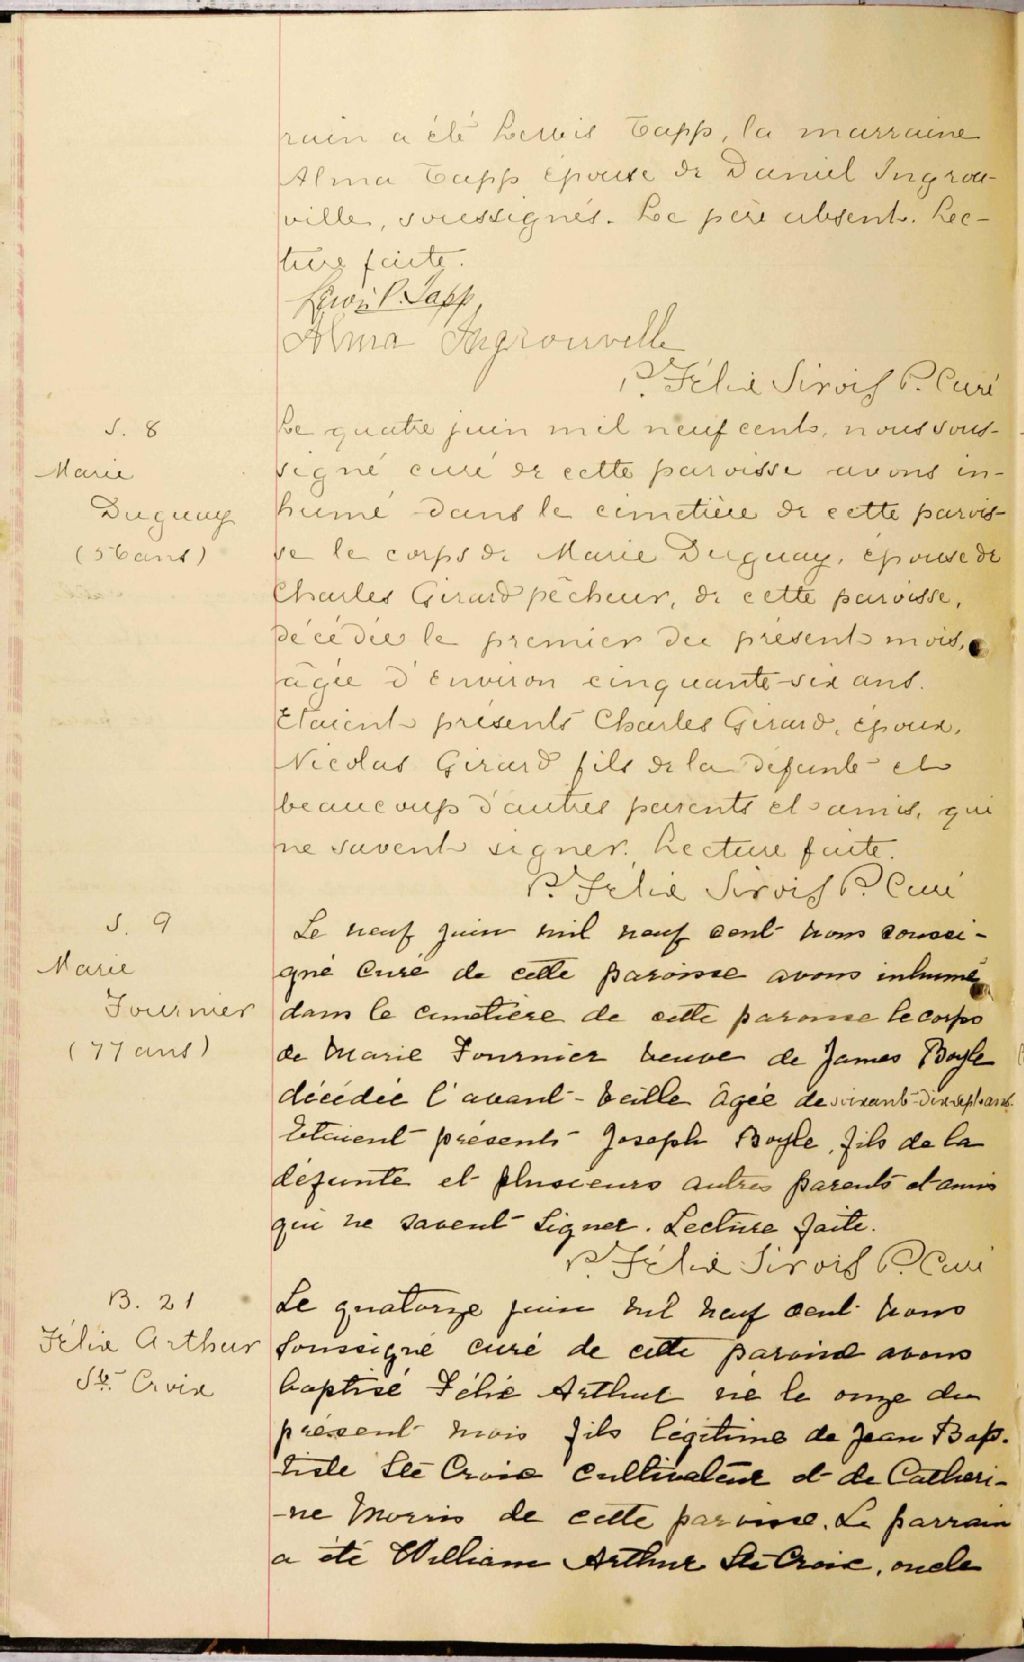 rain a été Lewis Tapp, la marraine
Alma Tapp épouse de Daniel Ingrou-
ville, soussignés. Le père absent. Lec-
ture faite.
Lewis P. Tapp
Alma Ingrouville
P. Félix Sirois P. Curé
S. 8
Marie
Duguay
(56 ans)
Le quatre juin mil neuf cent, nous sous-
signé curé de cette paroisse avons in-
humé dans le cimetière de cette parois-
se le corps de Marie Duguay, épouse de
Charles Girard pêcheur, de cette paroisse,
décédée le premier du présent mois,
âgée d'environ cinquante-six ans.
Etaient présents Charles Girard, époux,
Nicolas Girard fils de la défunte et
beaucoup d'autres parents et amis, qui
ne savent signer. Lecture faite.
P. Félix Sirois P. Curé
S. 9
Marie
Fournier
(77 ans)
Le neuf juin mil neuf cent nous soussi-
gné curé de cette paroisse avons inhumé
dans le cimetière de cette paroisse le corps
de Marie Fournier veuve de James Boyle
décédée l'avant-veille âgée de soixante-dix-sept ans.
Etaient présents Joseph Boyle, fils de la
défunte et plusieurs autres parents et amis
qui ne savent signer. Lecture faite.
P. Félix Sirois P. Curé
B. 21
Félix Arthur
Ste Croix
Le quatorze juin mil neuf cent nous
soussigné curé de cette paroisse avons
baptisé Félix Arthur né le onze du
présent mois fils légitime de Jean Bap-
tiste Ste Croix cultivateur et de Catheri-
-ne Morris de cette paroisse. Le parrain
a été William Arthur Ste Croix, oncle